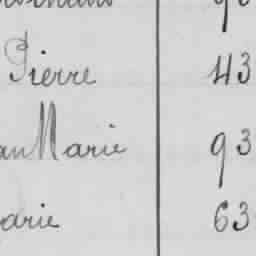 Pierre 43
an Marie 93
arie 63